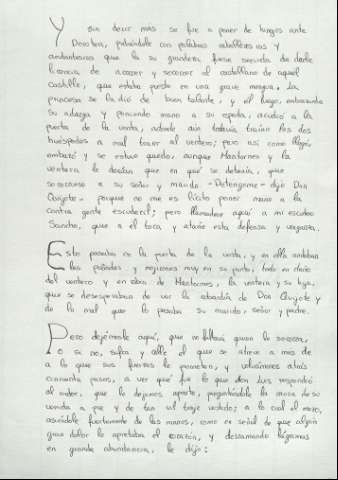 Y sin decir más se fue a poner de hinojos ante
Dorotea, pidiéndole con palabras caballerescas y
andantescas que la su grandeza fuese servida de darle
licencia de acorrer y socorrer al castellano de aquel
castillo, que estaba puesto en una grave mengua. La
princesa se la dió de buen talante, y él luego, embrazando
su adarga y poniendo mano a su espada, acudió a la
puerta de la venta, adonde aún todavía traían los dos
huéspedes a mal traer al ventero; pero así como llegó,
embazó y se estuvo quedo, aunque Maritornes y la
ventera le decían que en qué se detenía, que
socorriese a su señor y marido -Detengome- dijo Don
Quijote- porque no me es lícito poner mano a la
contra gente escuderil; pero llamadme aquí a mi escudero
Sancho, que a él toca y atañe esta defensa y venganza.
Esto pasaba en la puerta de la venta, y en ella andaban
las puñadas y mojicones muy en su punto, todo en daño
del ventero y en rabia de Maritornes, la ventera y su hija,
que se desesperaban de ver la cobardía de Don Quijote y
de lo mal que lo pasaba su marido, señor y padre.
Pero dejémosle aquí, que no faltará quien le socorra,
o si no, sufra y calle el que se atreve a más de
a lo que sus fuerzas le prometen, y volvámonos atrás
cincuenta pasos, a ver qué fue lo que don Luis respondió
al oidor, que le dejamos aparte, preguntándole la causa de su
venida a pie y de tan vil traje vestido; a lo cual el mozo,
asiéndole fuertemente de las manos, como en señal de que algún
gran dolor le apretaba el corazón, y derramando lágrimas
en grande abundancia, le dijo: